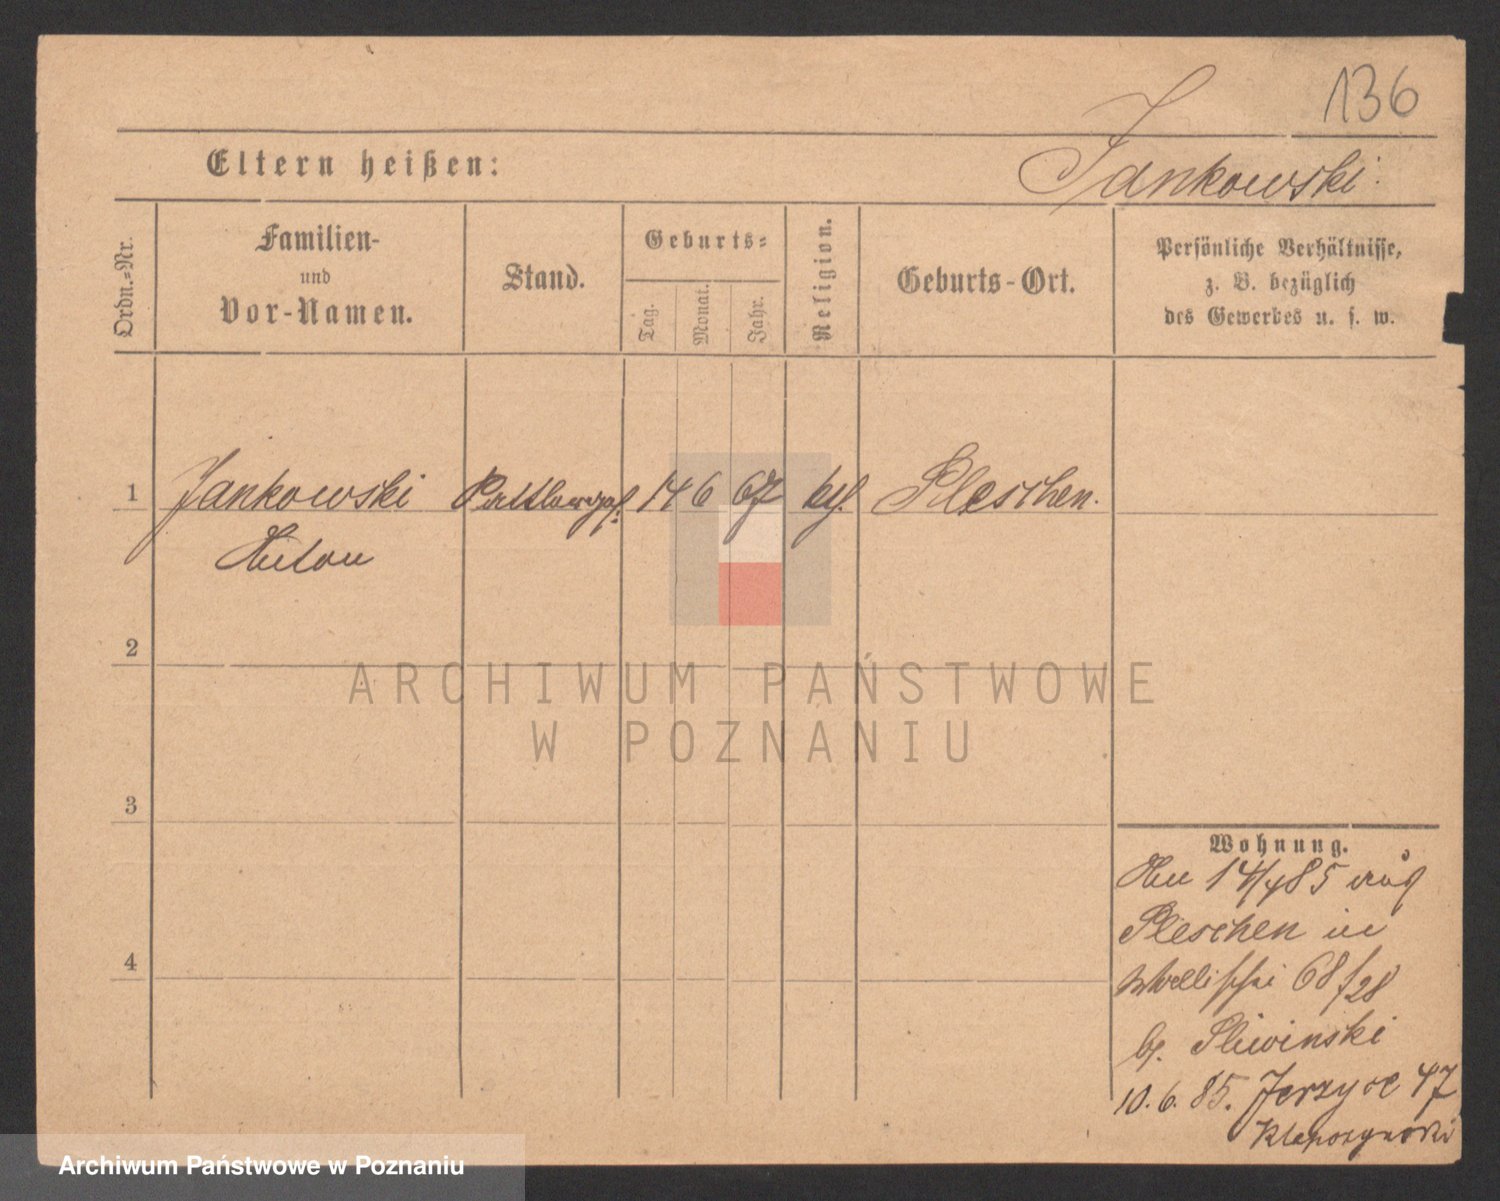 136
Eltern heißen:
Jankowski.
Ordn.-Nr.
Familien-
und
Vor-Namen.
Stand.
Geburts-
Tag.
Monat.
Jahr.
Religion.
Geburts-Ort.
Persönliche Verhältnisse,
z. B. bezüglich
des Gewerbes u. s. w.
1
Jankowski
14 6 67
Pleschen.
Anton
2
ARCHIWUM PAŃSTWOWE
W POZNANIU
3
Wohnung.
14/4 85 aus
Pleschen in
Wallischei 68/28
b. Sliwinski
4
10.6.85. Jerzyce 47
Archiwum Państwowe w Poznaniu